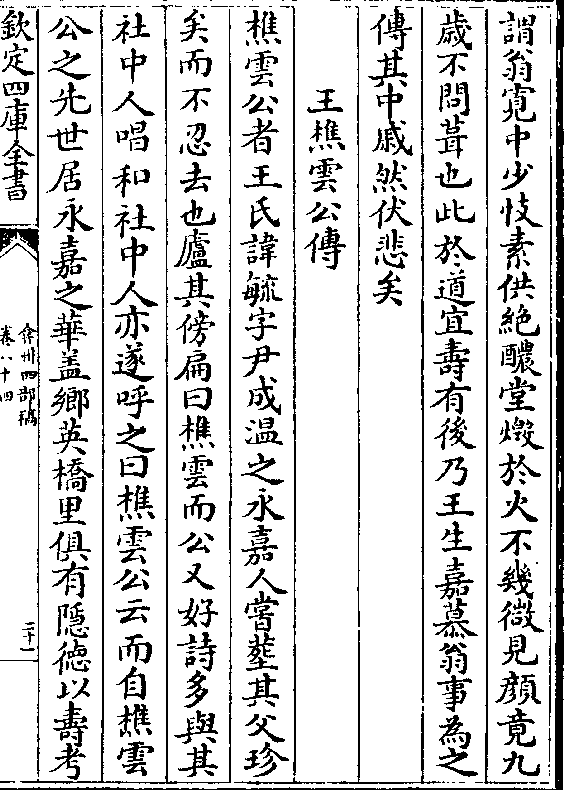 謂翁寛中少忮素供絶醲堂燬於火不幾微見顔竟九
歲不問葺也此於道宜壽有後乃王生嘉慕翁事為之
傳其中戚然伏悲矣
王樵雲公傳
樵雲公者王氏諱毓字尹成温之永嘉人嘗塟其父珍
矣而不忍去也廬其傍扁曰樵雲而公又好詩多與其
社中人唱和社中人亦遂呼之曰樵雲公云而自樵雲
公之先世居永嘉之華盖鄉英橋里俱有隠徳以壽考
欽定四庫全書
弇州四部稿
卷八十四
二十一